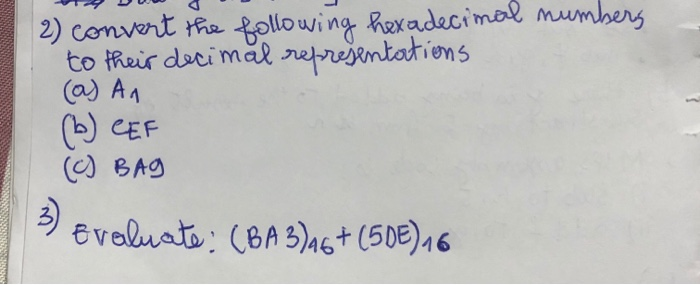 2) convert the following hexadecimal numbers
to their decimal representations
(a) A1
(b) CEF
(c) BA9
3) Evaluate: (BA3)16+(5DE)16